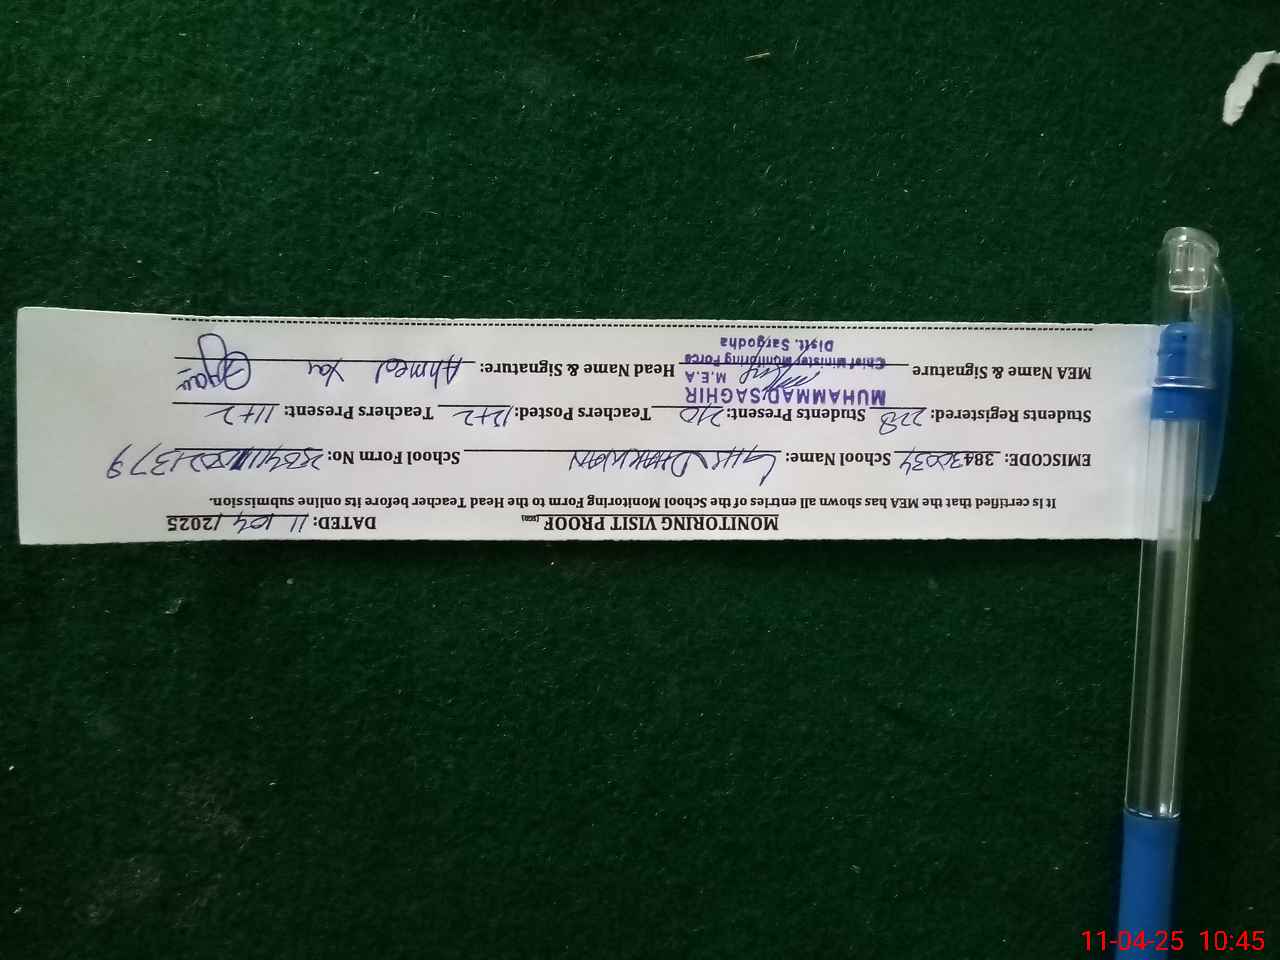 MONITORING VISIT PROOF DATED: 11/04/2025
It is certified that the MEA has shown all entries of the School Monitoring Form to the Head Teacher before its online submission.
EMISCODE: 38430034 School Name: GHS DHAKWAN School Form No:
Students Registered: 228 Students Present: 210 Teachers Posted: 12+2 Teachers Present: 11+2
MUHAMMAD SAGHIR
M.E.A
MEA Name & Signature Head Name & Signature: Ahmed Yar
Chief Minister Monitoring Force
Distt. Sargodha
11-04-25 10:45